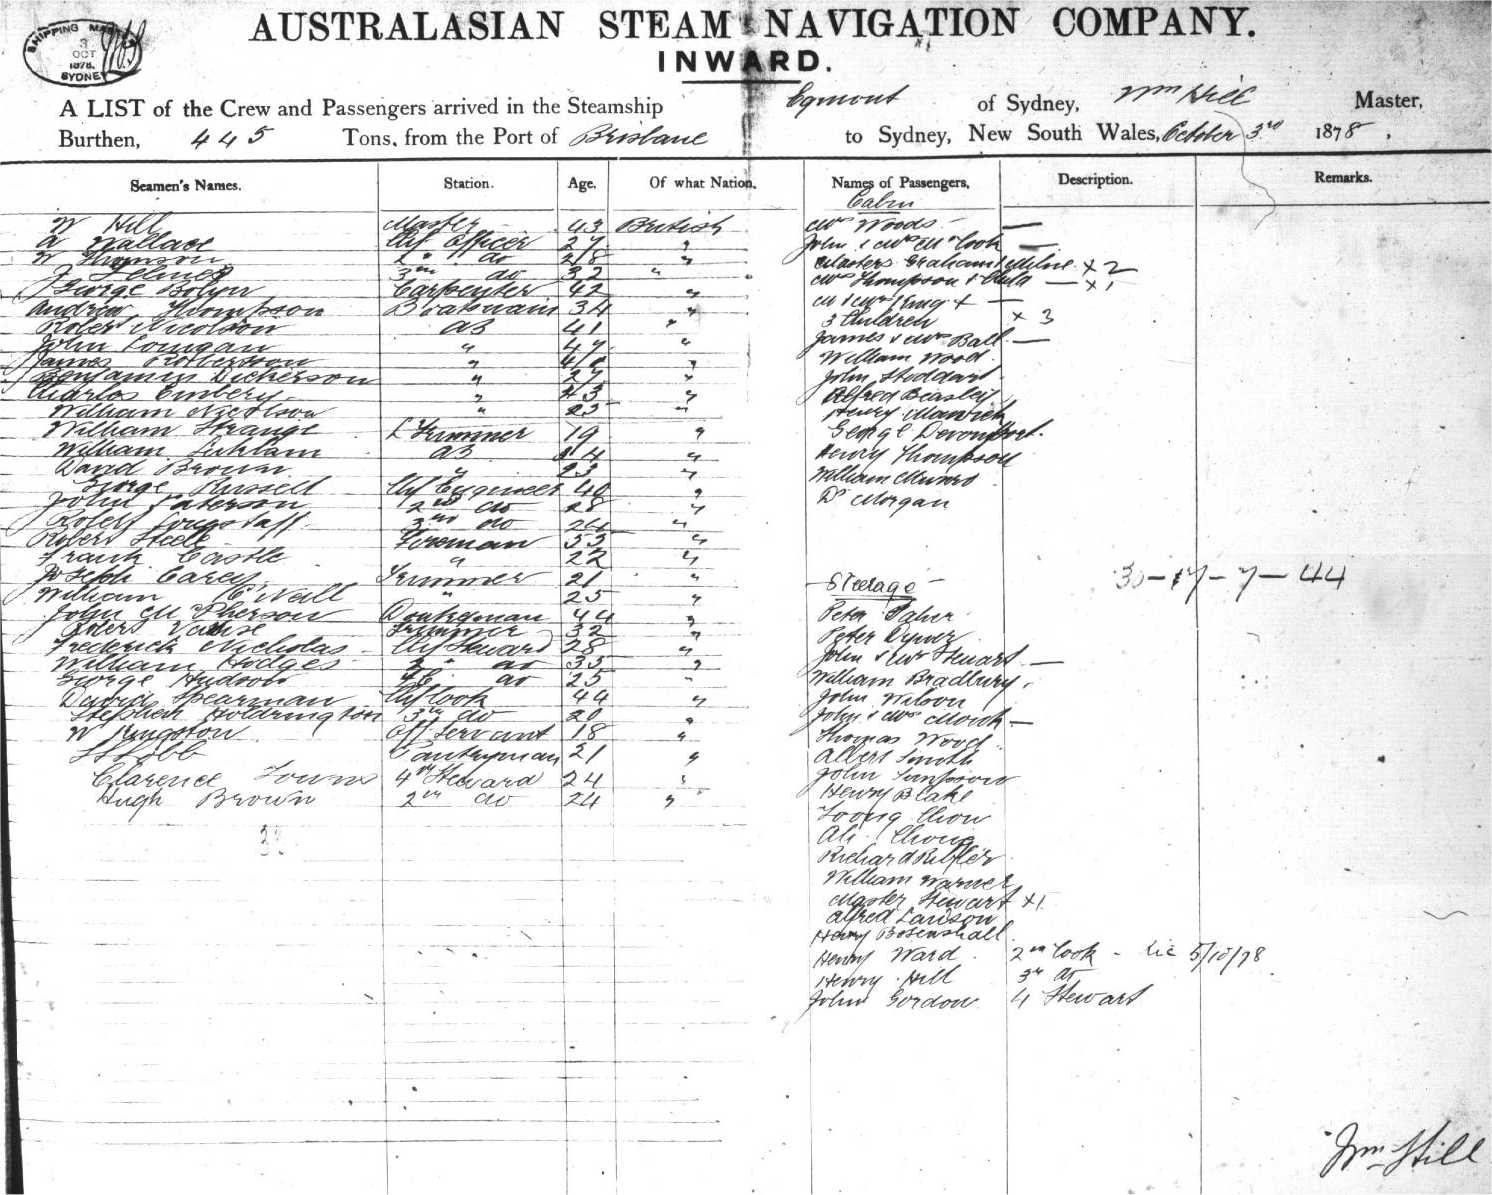 SHIPPING MASTER
3
OCT
1878.
SYDNEY
AUSTRALASIAN STEAM NAVIGATION COMPANY.
INWARD.
A LIST of the Crew and Passengers arrived in the Steamship Egmont of Sydney, Wm Hill Master,
Burthen, 445 Tons, from the Port of Brisbane to Sydney, New South Wales, October 3rd 1878,
Seamen's Names. Station. Age. Of what Nation.
W Hill Master 43 British
A Wallace Chf Officer 27 "
W Thomson 2nd do 28 "
J 3rd do 32 "
George Carpenter 42 "
Andrew Thompson Boatswain 34 "
Robert Nicolson AB 41 "
John " 47 "
James Robertson " "
Benjamin Dickerson " 27 "
Charles Embery " 43 "
William Nicolson " 25 "
William Strange L Trimmer 19 "
William AB "
David Brown " 23 "
George Russell Chf Engineer 40 "
John Paterson 2nd do 28 "
Robert Longstaff 3rd do 24 "
Robert Steele Fireman 55 "
Frank Castle " 22 "
Joseph Carey Trimmer 21 "
William " 25 "
John McPherson Donkeyman 44 "
Trimmer 32 "
Frederick Nicholas Chf Steward 28 "
William Hodges 2 " do 35 "
George Hudson do 25 "
David Spearman Chf Cook 44 "
Stephen Holdrington 3rd do 20 "
W Kingston Off Servant 18 "
Pantryman 21 "
Clarence Towns 4th Steward 24 "
Hugh Brown 2nd do 24 "
33
Names of Passengers, Description. Remarks.
Cabin
Mrs Woods —
John & Mrs McCook —
Masters Graham & Milne × 2
Mrs Thompson & Child — × 1
M & Mrs King + —
3 Children × 3
James & Mrs Ball —
William Wood
John Stoddart
Alfred Beasley
Henry
George Devonport.
Henry Thompson
William Munro
Dr Morgan
30 — 17 — 7 — 44
Steerage
Peter
Peter
John & Mrs Stewart —
William Bradbury
John Wilson
John & Mrs —
Thomas Wood
Albert Smith
John Simpson
Henry Blake
Toong Chow
Ah Chong
Richard
William Warner
Master Stewart × 1
Alfred
Henry
Henry Ward 2nd Cook - 5/10/78
Henry Hill 3rd do
John Gordon 4 Stewart
Wm Hill